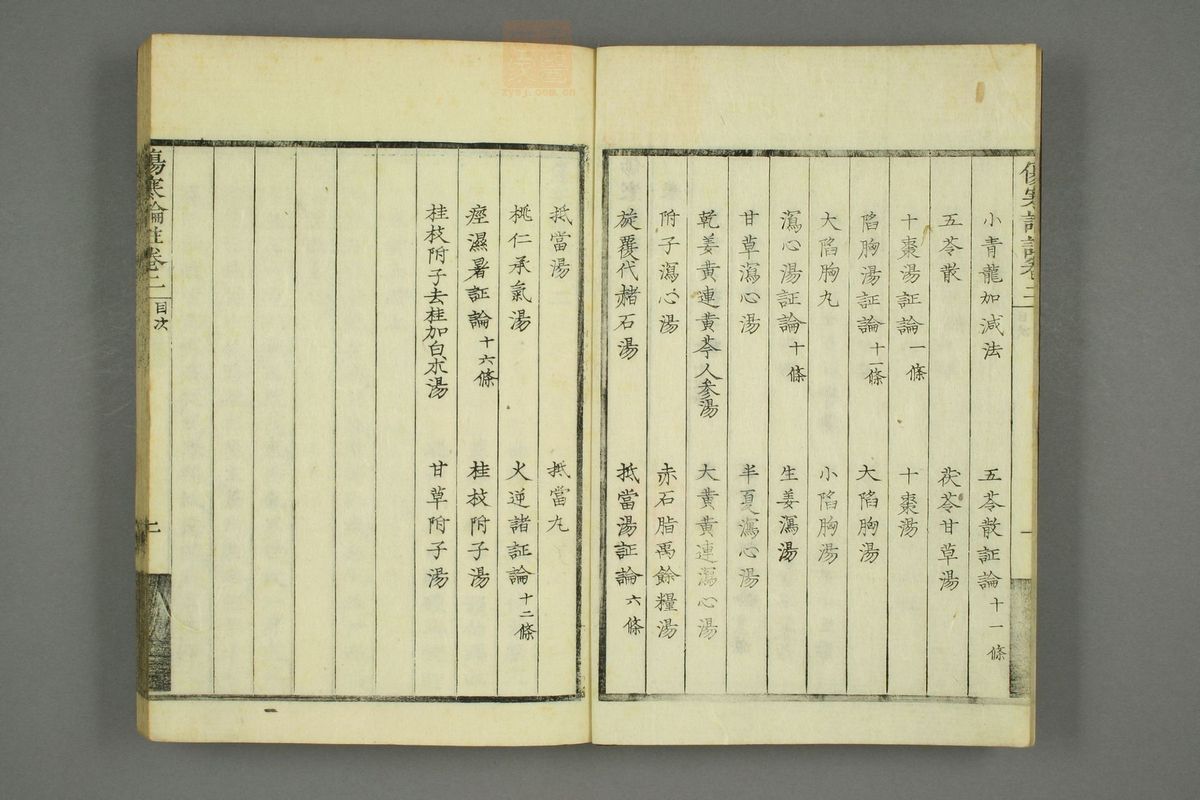 小青龍加減法　五苓散証論十一條
五苓散　茯苓甘草湯
十棗湯証論一條　十棗湯
陷胸湯証論十一條　大陷胸湯
大陷胸丸　小陷胸湯
瀉心湯証論十條　生姜瀉湯
甘草瀉心湯　半夏瀉心湯
乾姜黃連黃芩人参湯　大黃黃連瀉心湯
附子瀉心湯　赤石脂禹餘糧湯
旋覆代赭石湯　抵當湯証論六條
抵當湯　抵當丸
桃仁承氣湯　火逆諸証論十二條
痙濕暑証論十六條　桂枝附子湯
桂枝附子去桂加白朮湯　甘草附子湯
傷寒論註卷二　目次
zysj.com.cn